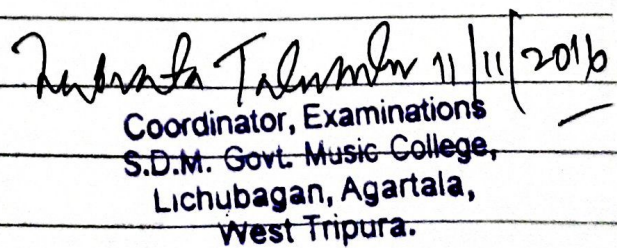 Talukder 11/11/2016
Coordinator, Examinations
S.D.M. Govt. Music College,
Lichubagan, Agartala,
West Tripura.